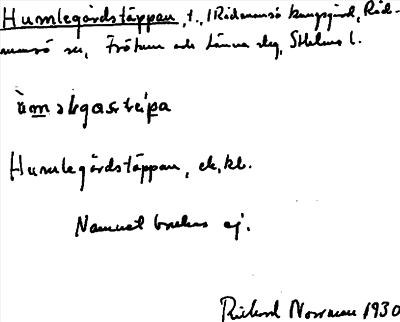 Humlegårdstäppan, t., i Rådmansö kungsgård, Råd-
mansö sn, Frötuna och Länna skg, Sthlms l.
Humlegårdstäppan, ek.kb.
Namnet brukas ej.
Rickard Norrman 1930